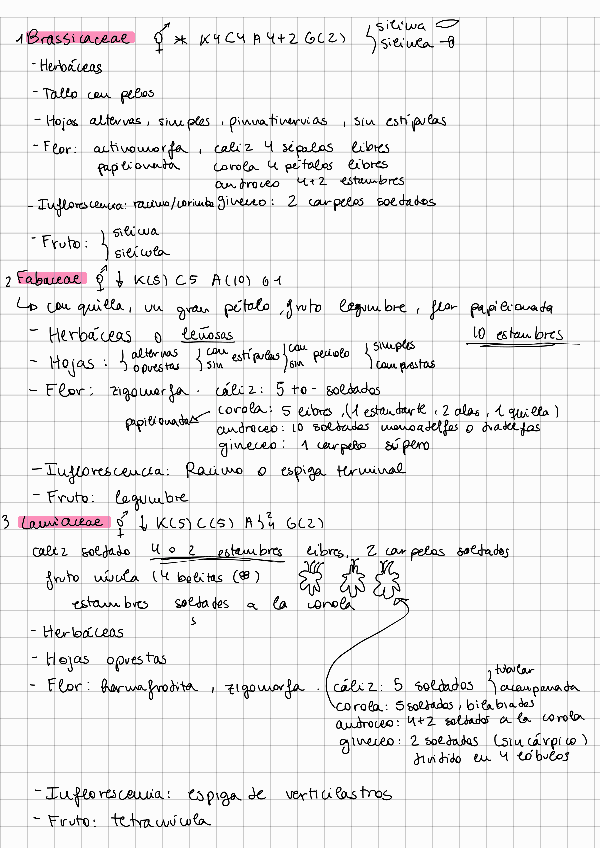 1 Brassicaceae ⚥ * K4 C4 A 4+2 G(2) } silicua
silicula
- Herbáceas
- Tallo con pelos
- Hojas alternas, simples, pinnatinervias, sin estípulas
- Flor: actinomorfa, caliz 4 sépalos libres
papilionada corola 4 pétalos libres
androceo 4+2 estambres
- Inflorescencia: racimo/corimbo gineceo: 2 carpelos soldados
- Fruto: } silicua
silícula
2 Fabaceae ⚥ ↓ K(5) C5 A(10) G1
↳ con quilla, un gran pétalo, fruto legumbre, flor papilionada
- Herbáceas o leñosas 10 estambres
- Hojas: } alternas } con estípulas } con peciolo } simples
opuestas sin sin compuestas
- Flor: zigomorfa. cáliz: 5 to- soldados
papilionada corola: 5 libres, (1 estandarte, 2 alas, 1 quilla)
androceo: 10 soldados monoadelfos o diadelfos
gineceo: 1 carpelo súpero
- Inflorescencia: Racimo o espiga terminal
- Fruto: legumbre
3 Lamiaceae ⚥ ↓ K(5) C(5) A } 2 4 G(2)
caliz soldado 4 o 2 estambres libres, 2 carpelos soldados
fruto núcula (4 bolitas (⊕)
estambres soldados a la corola
s
- Herbáceas
- Hojas opuestas
- Flor: hermafrodita, zigomorfa. cáliz: 5 soldados } tubular
acampanada
corola: 5 soldados, bilabiados
androceo: 4+2 soldados a la corola
gineceo: 2 soldados (sincárpico)
dividido en 4 lóbulos
- Inflorescencia: espiga de verticilastros
- Fruto: tetranúcula